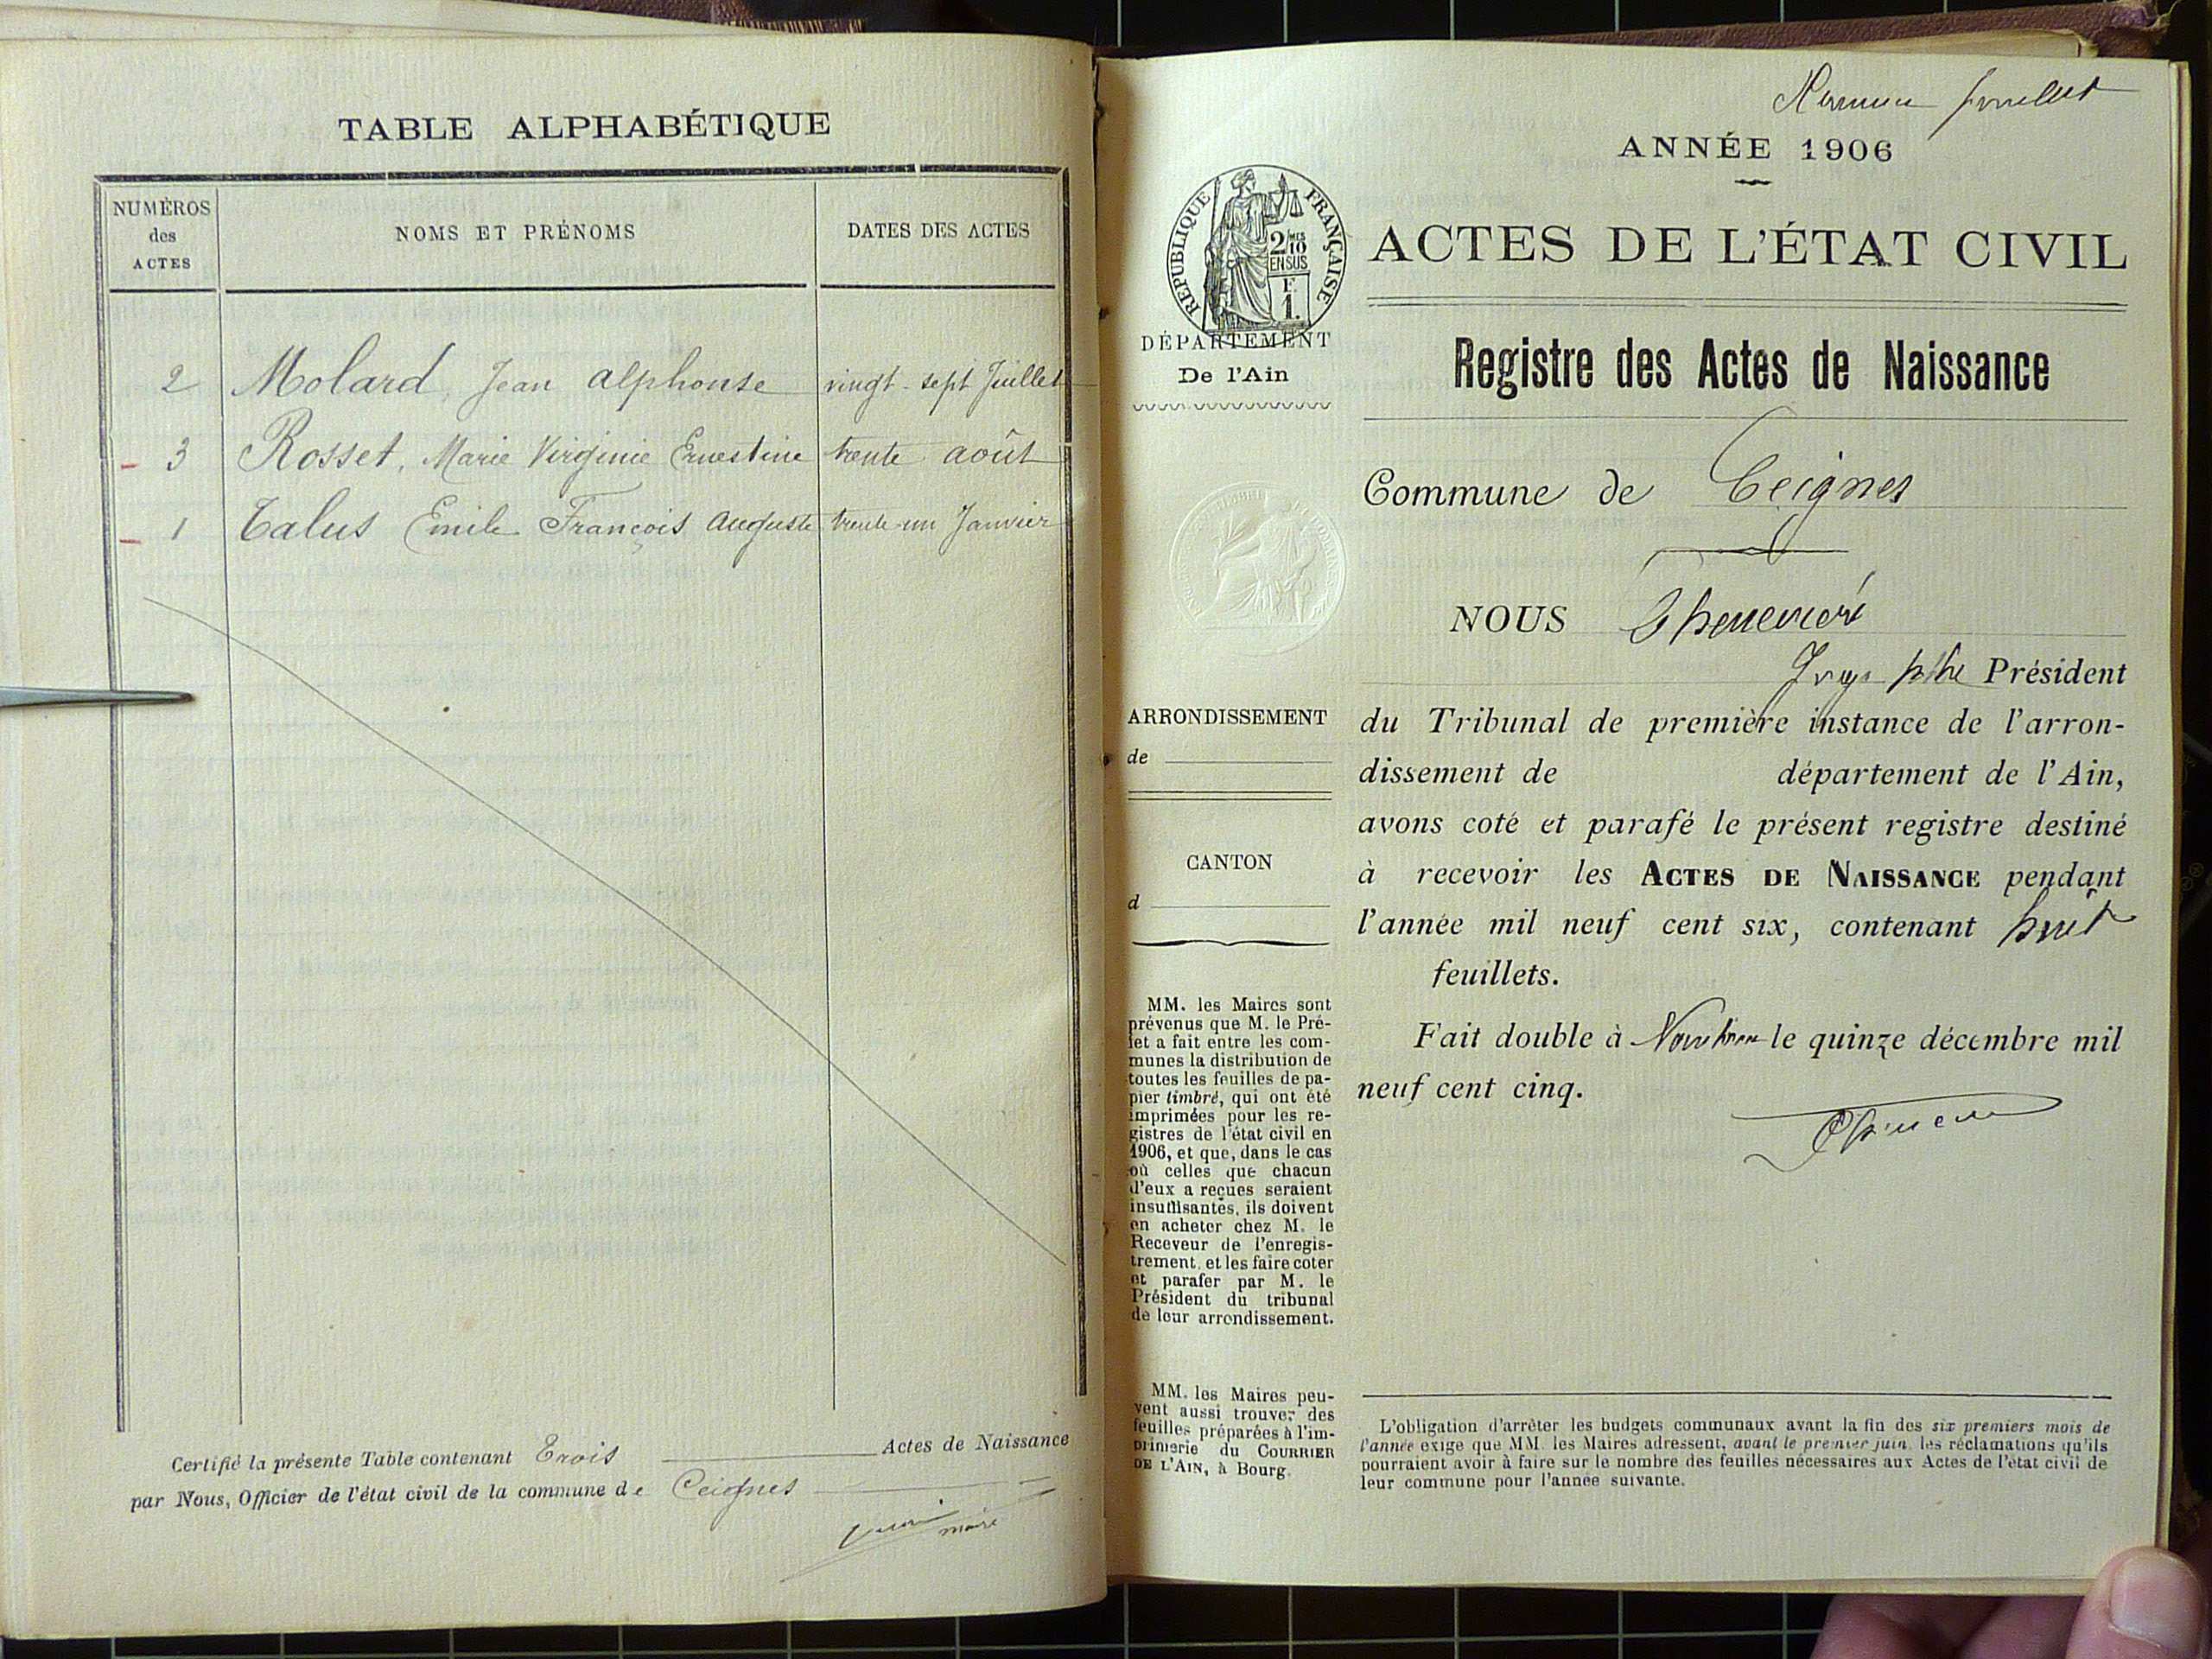 TABLE ALPHABÉTIQUE
NUMÉROS
des
ACTES
NOMS ET PRÉNOMS
DATES DES ACTES
2 Molard, Jean Alphonse vingt-sept Juillet
3 Rosset, Marie Virginie Ernestine trente août
1 Talus Emile François Auguste trente-un Janvier
Certifié la présente Table contenant Trois Actes de Naissance
par Nous, Officier de l'état civil de la commune de Ceignes
maire
feuillet
ANNÉE 1906
RÉPUBLIQUE FRANÇAISE
2/MES
10
EN SUS
F.
1.
DÉPARTEMENT
De l'Ain
ARRONDISSEMENT
de
CANTON
d
MM. les Maires sont
prévenus que M. le Pré-
fet a fait entre les com-
munes la distribution de
toutes les feuilles de pa-
pier timbré, qui ont été
imprimées pour les re-
gistres de l'état civil en
1906, et que, dans le cas
où celles que chacun
d'eux a reçues seraient
insuffisantes, ils doivent
en acheter chez M. le
Receveur de l'enregis-
trement, et les faire coter
et parafer par M. le
Président du tribunal
de leur arrondissement.
MM. les Maires peu-
vent aussi trouver des
feuilles préparées à l'im-
primerie du COURRIER
DE L'AIN, à Bourg.
ACTES DE L'ÉTAT CIVIL
Registre des Actes de Naissance
Commune de Ceignes
NOUS
Juge Président
du Tribunal de première instance de l'arron-
dissement de département de l'Ain,
avons coté et parafé le présent registre destiné
à recevoir les ACTES DE NAISSANCE pendant
l'année mil neuf cent six, contenant huit
feuillets.
Fait double à Nantua le quinze décembre mil
neuf cent cinq.
L'obligation d'arrêter les budgets communaux avant la fin des six premiers mois de
l'année exige que MM. les Maires adressent, avant le premier juin, les réclamations qu'ils
pourraient avoir à faire sur le nombre des feuilles nécessaires aux Actes de l'état civil de
leur commune pour l'année suivante.